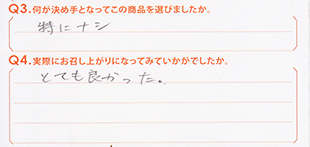 Q3.何が決め手となってこの商品を選びましたか。
特にナシ
Q4.実際にお召し上がりになってみていかがでしたか。
とても良かった。